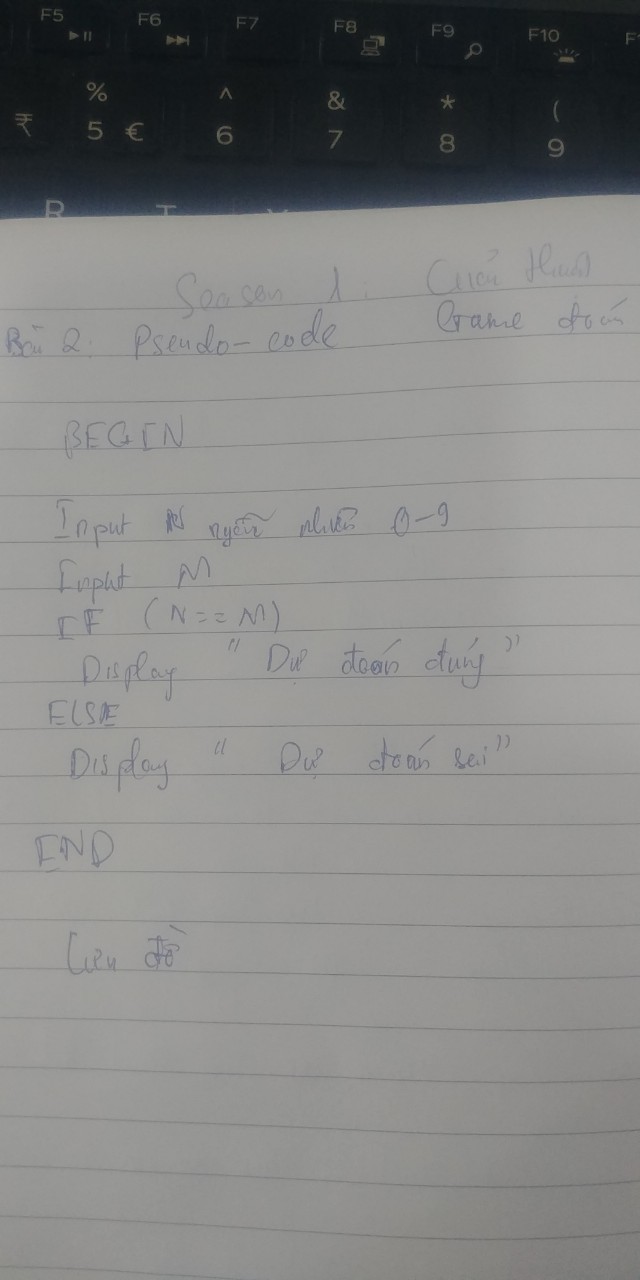 F5 F6 F7 F8 F9 F10 F1
% ^ & * (
₹ 5 € 6 7 8 9
R T Y
1:
Bài 2: Pseudo-code Game đoán
BEGIN
Input N ngẫu nhiên 0-9
Input M
IF (N == M)
Display "Dự đoán đúng"
ELSE
Display "Dự đoán sai"
END
Lưu đồ